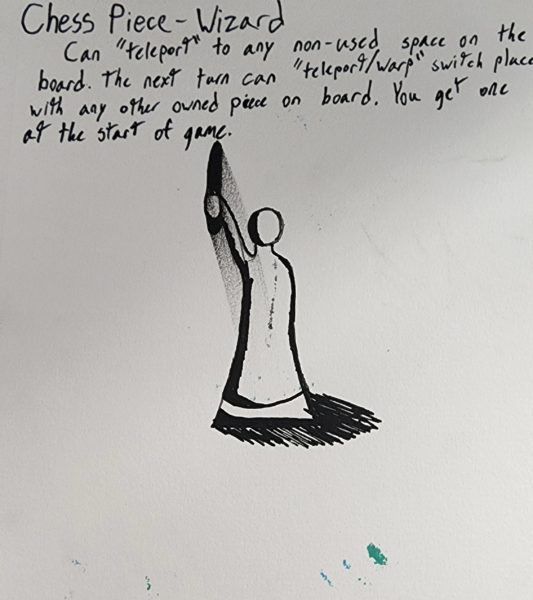 Chess Piece - Wizard
Can "teleport" to any non-used space on the
board. The next turn can "teleport/warp" switch place
with any other owned piece on board. You get one
at the start of game.